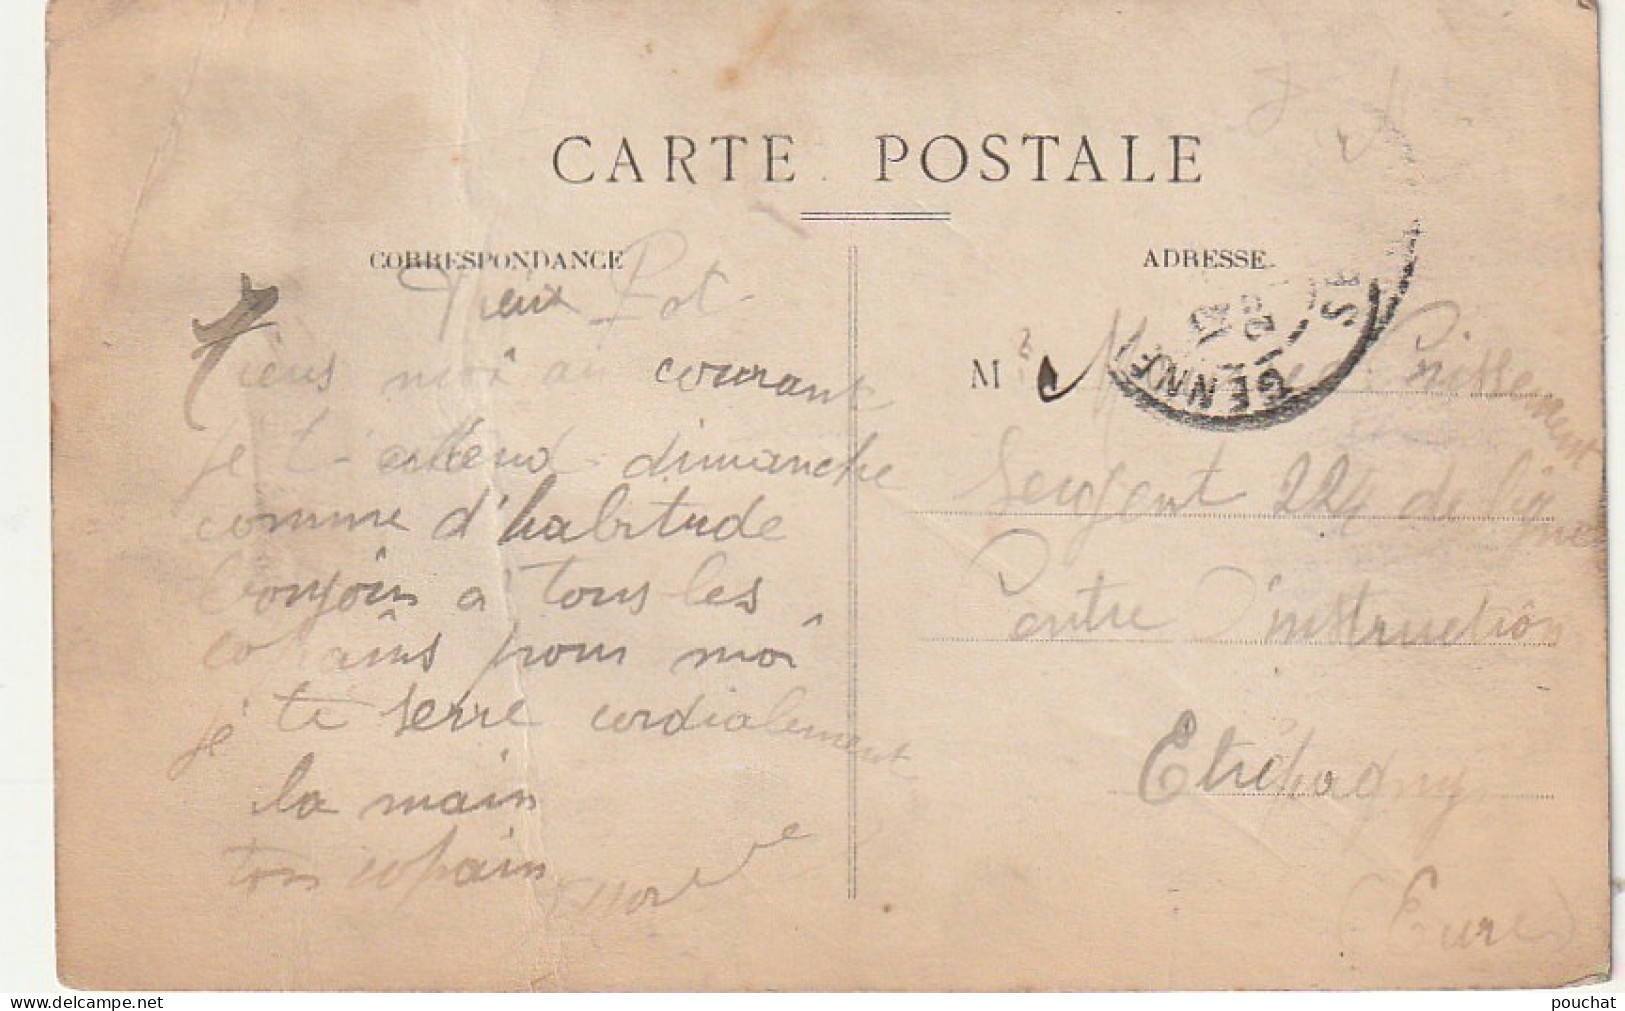 CARTE POSTALE
CORRESPONDANCE
Vieux Pot
Tiens moi au courant
je t'attend dimanche
comme d'habitude
bonjour a tous les
copains pour moi
je te serre cordialement
la main
ton copain
ADRESSE
M
Sergent 224 de ligne
Centre d'instruction
Etrépagny
(Eure)
GENNE
delcampe.net
pouchat